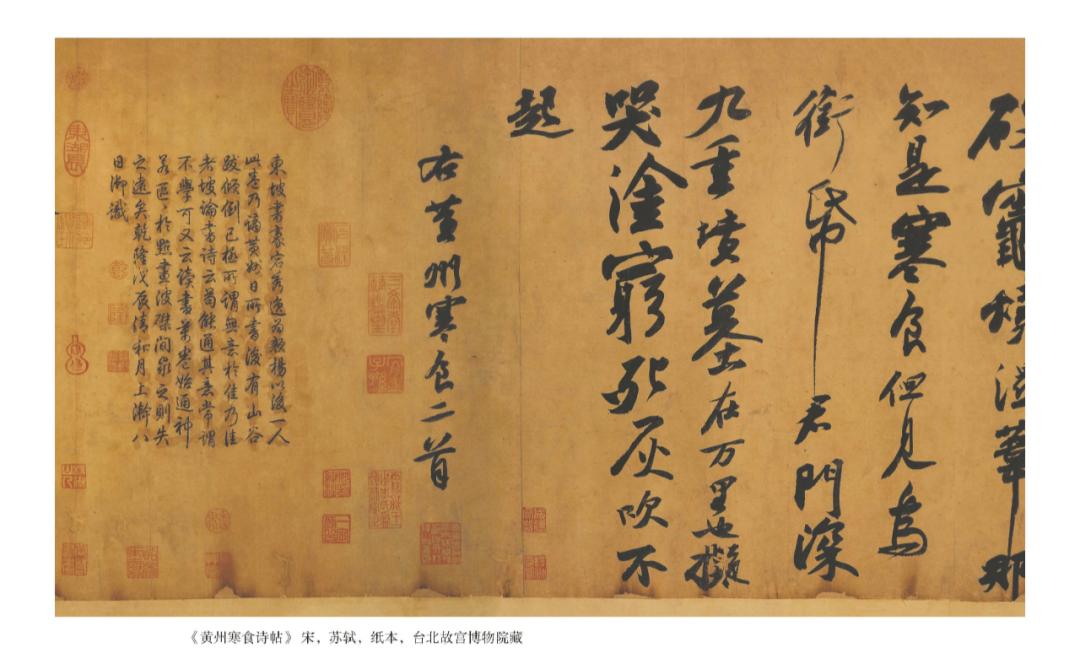 破竈燒濕葦那
知是寒食但見烏
銜帋君門深
九重墳墓在万里也擬
哭塗窮死灰吹不
起
右黃州寒食二首
東坡書豪宕秀逸為顏楊以後一人
此卷乃謫黃州日所書後有山谷
跋傾倒已極所謂無意於佳乃佳
者坡論書詩云苟能通其意常謂
不學可又云讀書萬卷始通神
若區〻於點畫波磔間求之則失
之遠矣乾隆戊辰清和月上澣八
日御識
《黄州寒食诗帖》宋，苏轼，纸本，台北故宫博物院藏